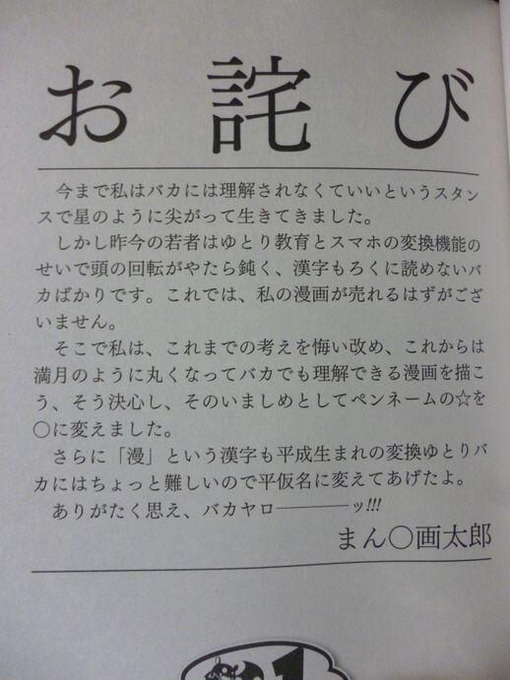 お詫び
今まで私はバカには理解されなくていいというスタン
スで星のように尖がって生きてきました。
しかし昨今の若者はゆとり教育とスマホの変換機能の
せいで頭の回転がやたら鈍く、漢字もろくに読めないバ
カばかりです。これでは、私の漫画が売れるはずがござ
いません。
そこで私は、これまでの考えを悔い改め、これからは
満月のように丸くなってバカでも理解できる漫画を描こ
う、そう決心し、そのいましめとしてペンネームの☆を
〇に変えました。
さらに「漫」という漢字も平成生まれの変換ゆとりバ
カにはちょっと難しいので平仮名に変えてあげたよ。
ありがたく思え、バカヤロ――――ッ!!!
まん〇画太郎